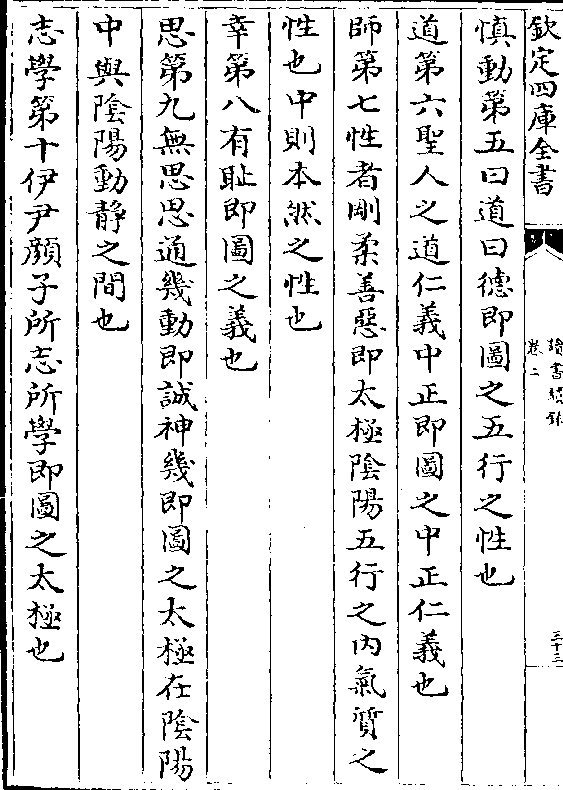 欽定四庫全書
讀書續錄
卷二
三十三
慎動第五曰道曰德即圖之五行之性也
道第六聖人之道仁義中正即圖之中正仁義也
師第七性者剛柔善惡即太極陰陽五行之內氣質之
性也中則本然之性也
幸第八有恥即圖之義也
思第九無思思通幾動即誠神幾即圖之太極在陰陽
中與陰陽動靜之間也
志學第十伊尹顏子所志所學即圖之太極也